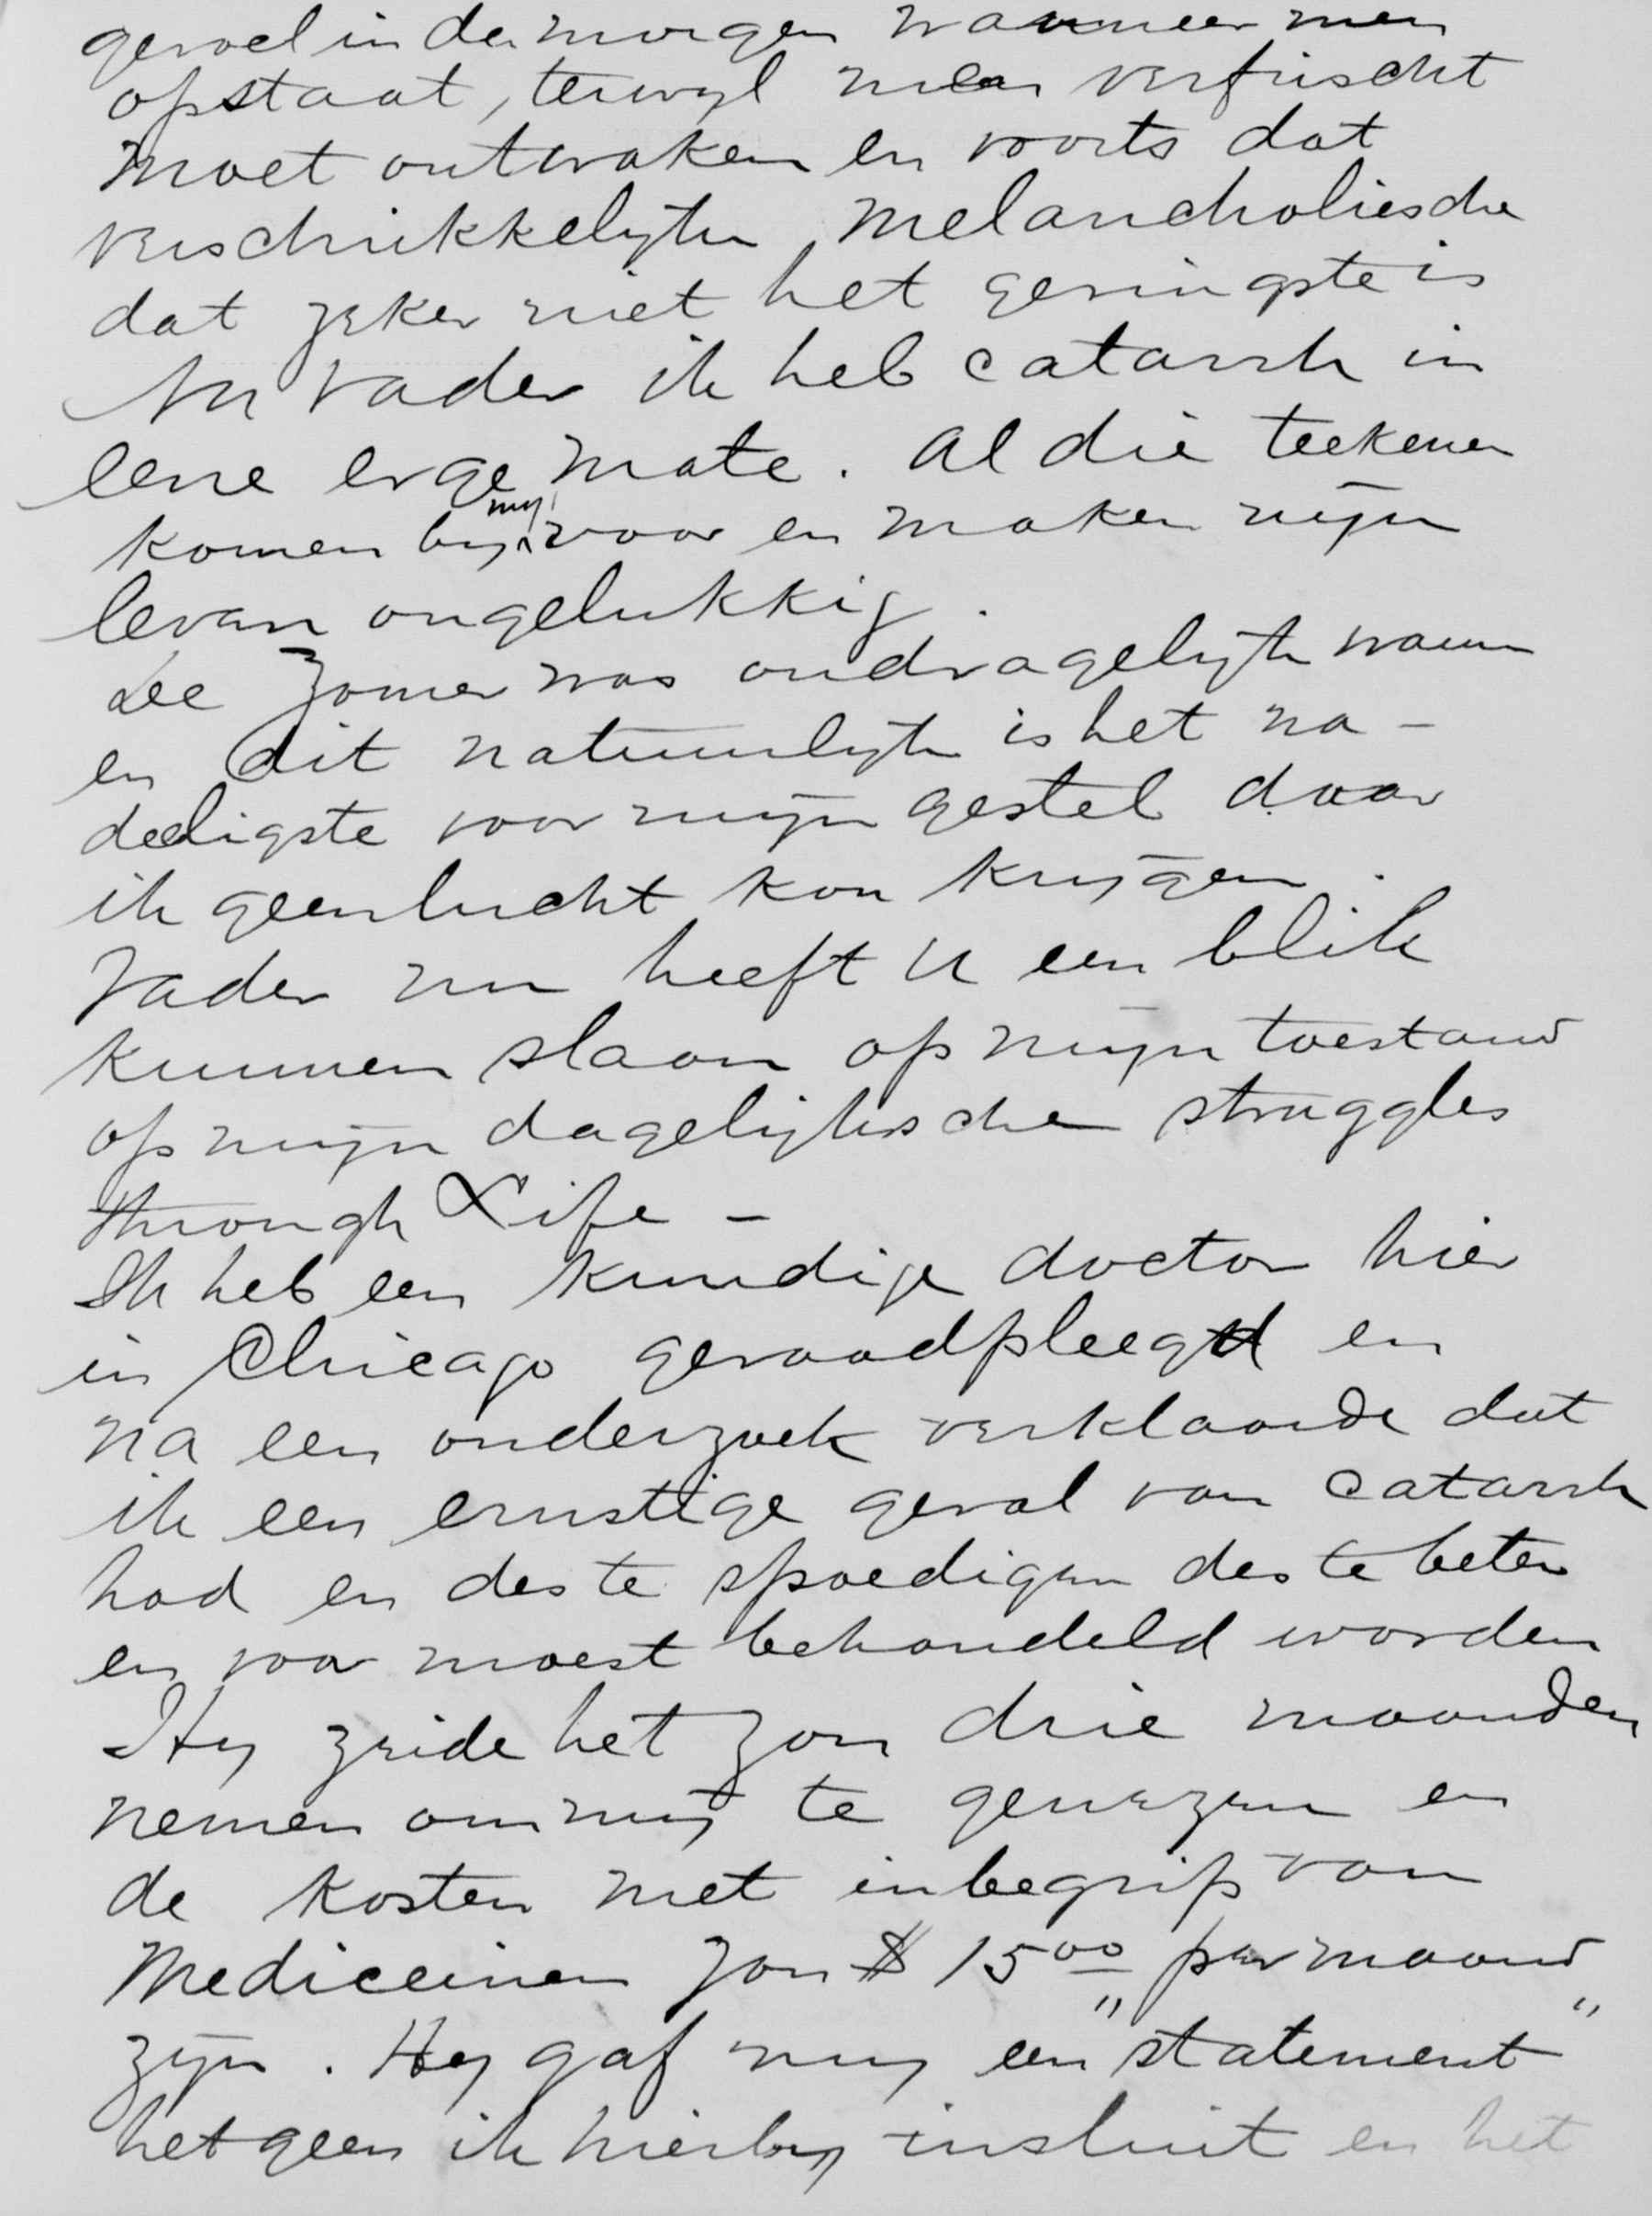 gevoel in den morgen wanneer men
opstaat, terwyl men verfrischt
moet ontwaken en voorts dat
verschrikkelyke melancholiesche
dat zeker niet het geringste is
Nu Vader ik heb catarrh in
eene erge mate. Al die teekenen
komen by my voor en maken mijn
leven ongelukkig.
De Zomer was ondragelyk warm
en dit natuurlyk is het na-
deeligste voor mijn gestel daar
ik geen lucht kon krijgen.
Vader nu heeft U een blik
kunnen slaan op mijn toestand
op mijn dagelijksche struggles
through Life -
Ik heb een kundige doctor hier
in Chicago geraadpleegd en
na een onderzoek verklaarde dat
ik een ernstige geval van catarrh
had en des te spoediger des te beter
er voor moest behandeld worden
Hy zeide het zou drie maanden
nemen om mij te genezen en
de kosten met inbegrip van
Mediceinen zou $ 15 00 per maand
zijn. Hy gaf my een "statement"
hetgeen ik hierby insluit en het